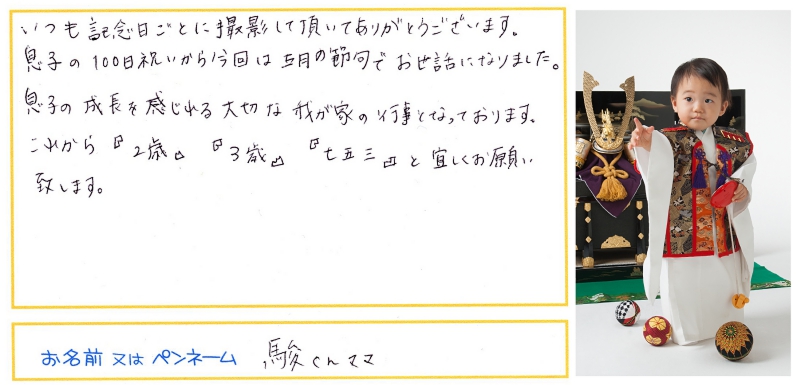 いつも記念日ごとに撮影して頂いてありがとうございます。
息子の100日祝いから今回は五月の節句でお世話になりました。
息子の成長を感じれる大切な我が家の行事となっております。
これから『2歳』『3歳』『七五三』と宜しくお願い
致します。
お名前 又は ペンネーム 駿くんママ